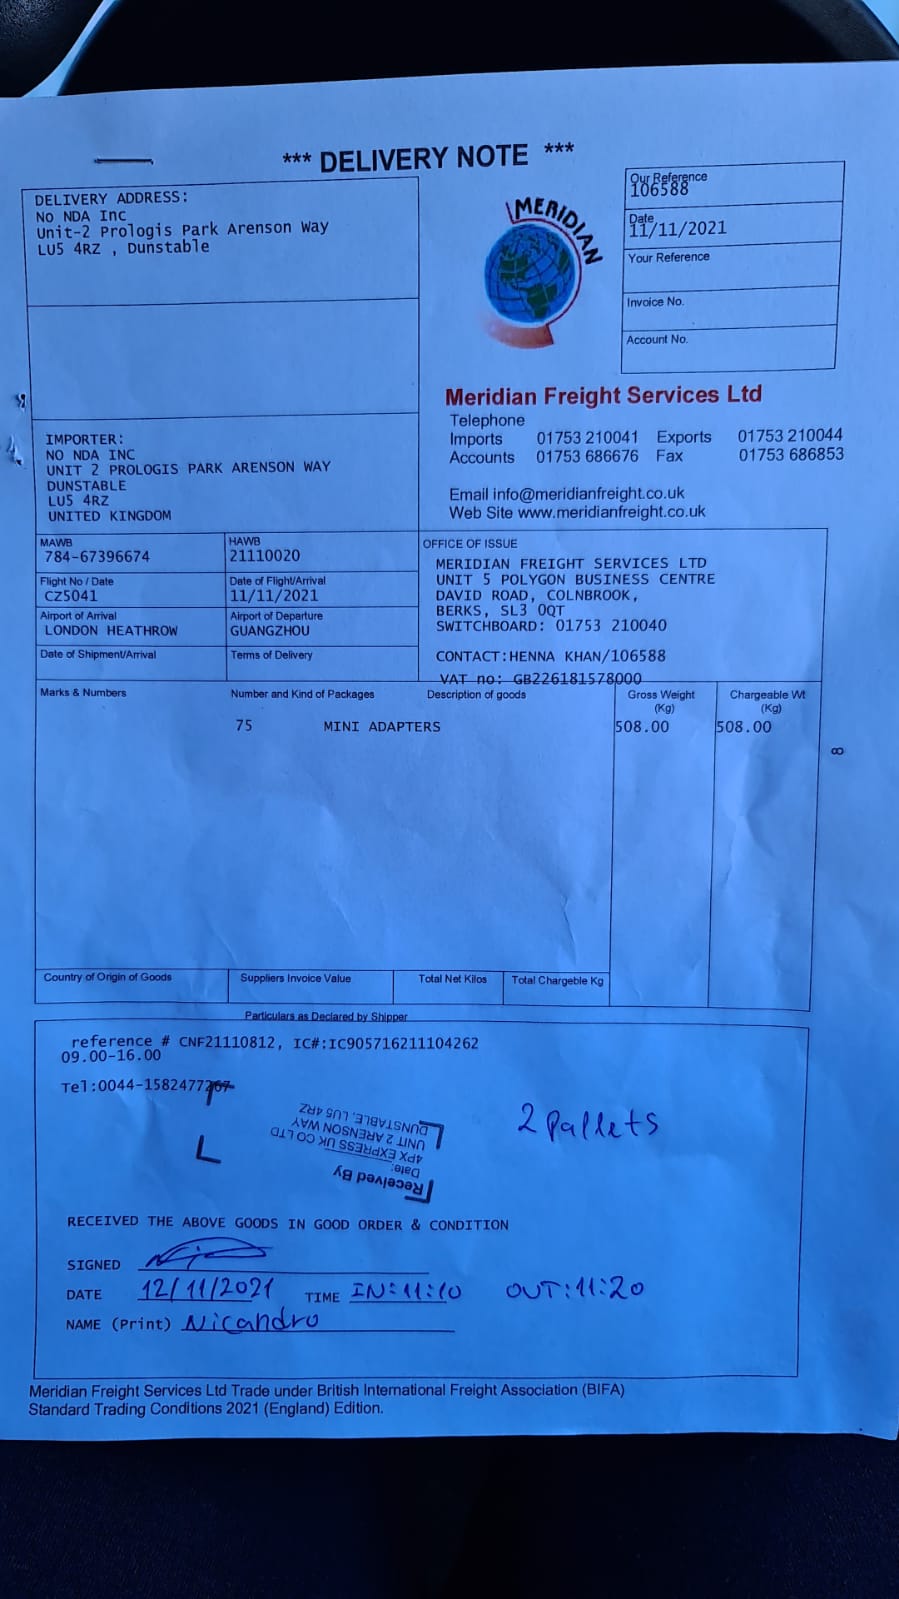 *** DELIVERY NOTE ***
DELIVERY ADDRESS:
No NDA Inc
Unit-2 Prologis Park Arenson Way
LU5 4RZ , Dunstable
MERIDIAN
Our Reference
106588
Date
11/11/2021
Your Reference
Invoice No.
Account No.
Meridian Freight Services Ltd
Telephone
Imports 01753 210041 Exports 01753 210044
Accounts 01753 686676 Fax 01753 686853
Email info@meridianfreight.co.uk
Web Site www.meridianfreight.co.uk
IMPORTER:
NO NDA INC
UNIT 2 PROLOGIS PARK ARENSON WAY
DUNSTABLE
LU5 4RZ
UNITED KINGDOM
MAWB
784-67396674
HAWB
21110020
Flight No / Date
CZ5041
Date of Flight/Arrival
11/11/2021
Airport of Arrival
LONDON HEATHROW
Airport of Departure
GUANGZHOU
Date of Shipment/Arrival
Terms of Delivery
OFFICE OF ISSUE
MERIDIAN FREIGHT SERVICES LTD
UNIT 5 POLYGON BUSINESS CENTRE
DAVID ROAD, COLNBROOK,
BERKS, SL3 0QT
SWITCHBOARD: 01753 210040
CONTACT:HENNA KHAN/106588
VAT no: GB226181578000
Marks & Numbers Number and Kind of Packages Description of goods Gross Weight (Kg) Chargeable Wt (Kg)
75 MINI ADAPTERS 508.00 508.00
8
Country of Origin of Goods Suppliers Invoice Value Total Net Kilos Total Chargeble Kg
Particulars as Declared by Shipper
reference # CNF21110812, IC#:IC905716211104262
09.00-16.00
Tel:0044-1582477267
Received By
Date:
4PX EXPRESS UK CO LTD
UNIT 2 ARENSON WAY
DUNSTABLE, LU5 4RZ
2 Pallets
RECEIVED THE ABOVE GOODS IN GOOD ORDER & CONDITION
SIGNED
DATE 12/11/2021 TIME IN:11:10 OUT:11:20
NAME (Print) Nicandro
Meridian Freight Services Ltd Trade under British International Freight Association (BIFA)
Standard Trading Conditions 2021 (England) Edition.